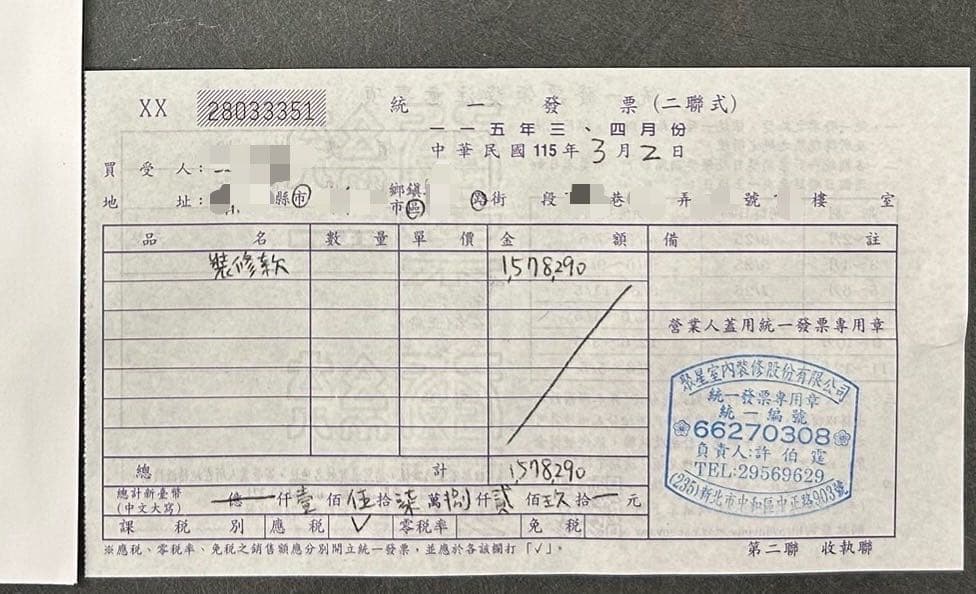 XX 28033351 統一發票(二聯式)
一一五年三、四月份
中華民國115年3月2日
買受人:
地址: 縣市 鄉鎮市區 路街 段 巷 弄 號 樓 室
品名 數量 單價 金額 備註
裝修款 1,578,290
營業人蓋用統一發票專用章
聚星室內裝修股份有限公司
統一發票專用章
統一編號
66270308
負責人:許伯霆
TEL:29569629
(235)新北市中和區中正路903號
總計 1,578,290
總計新臺幣(中文大寫) 億 仟 壹 佰 伍 拾 柒 萬 捌 仟 貳 佰 玖 拾 元
課稅別 應稅 V 零稅率 免稅
※應稅、零稅率、免稅之銷售額應分別開立統一發票,並應於各該欄打「V」。
第二聯 收執聯